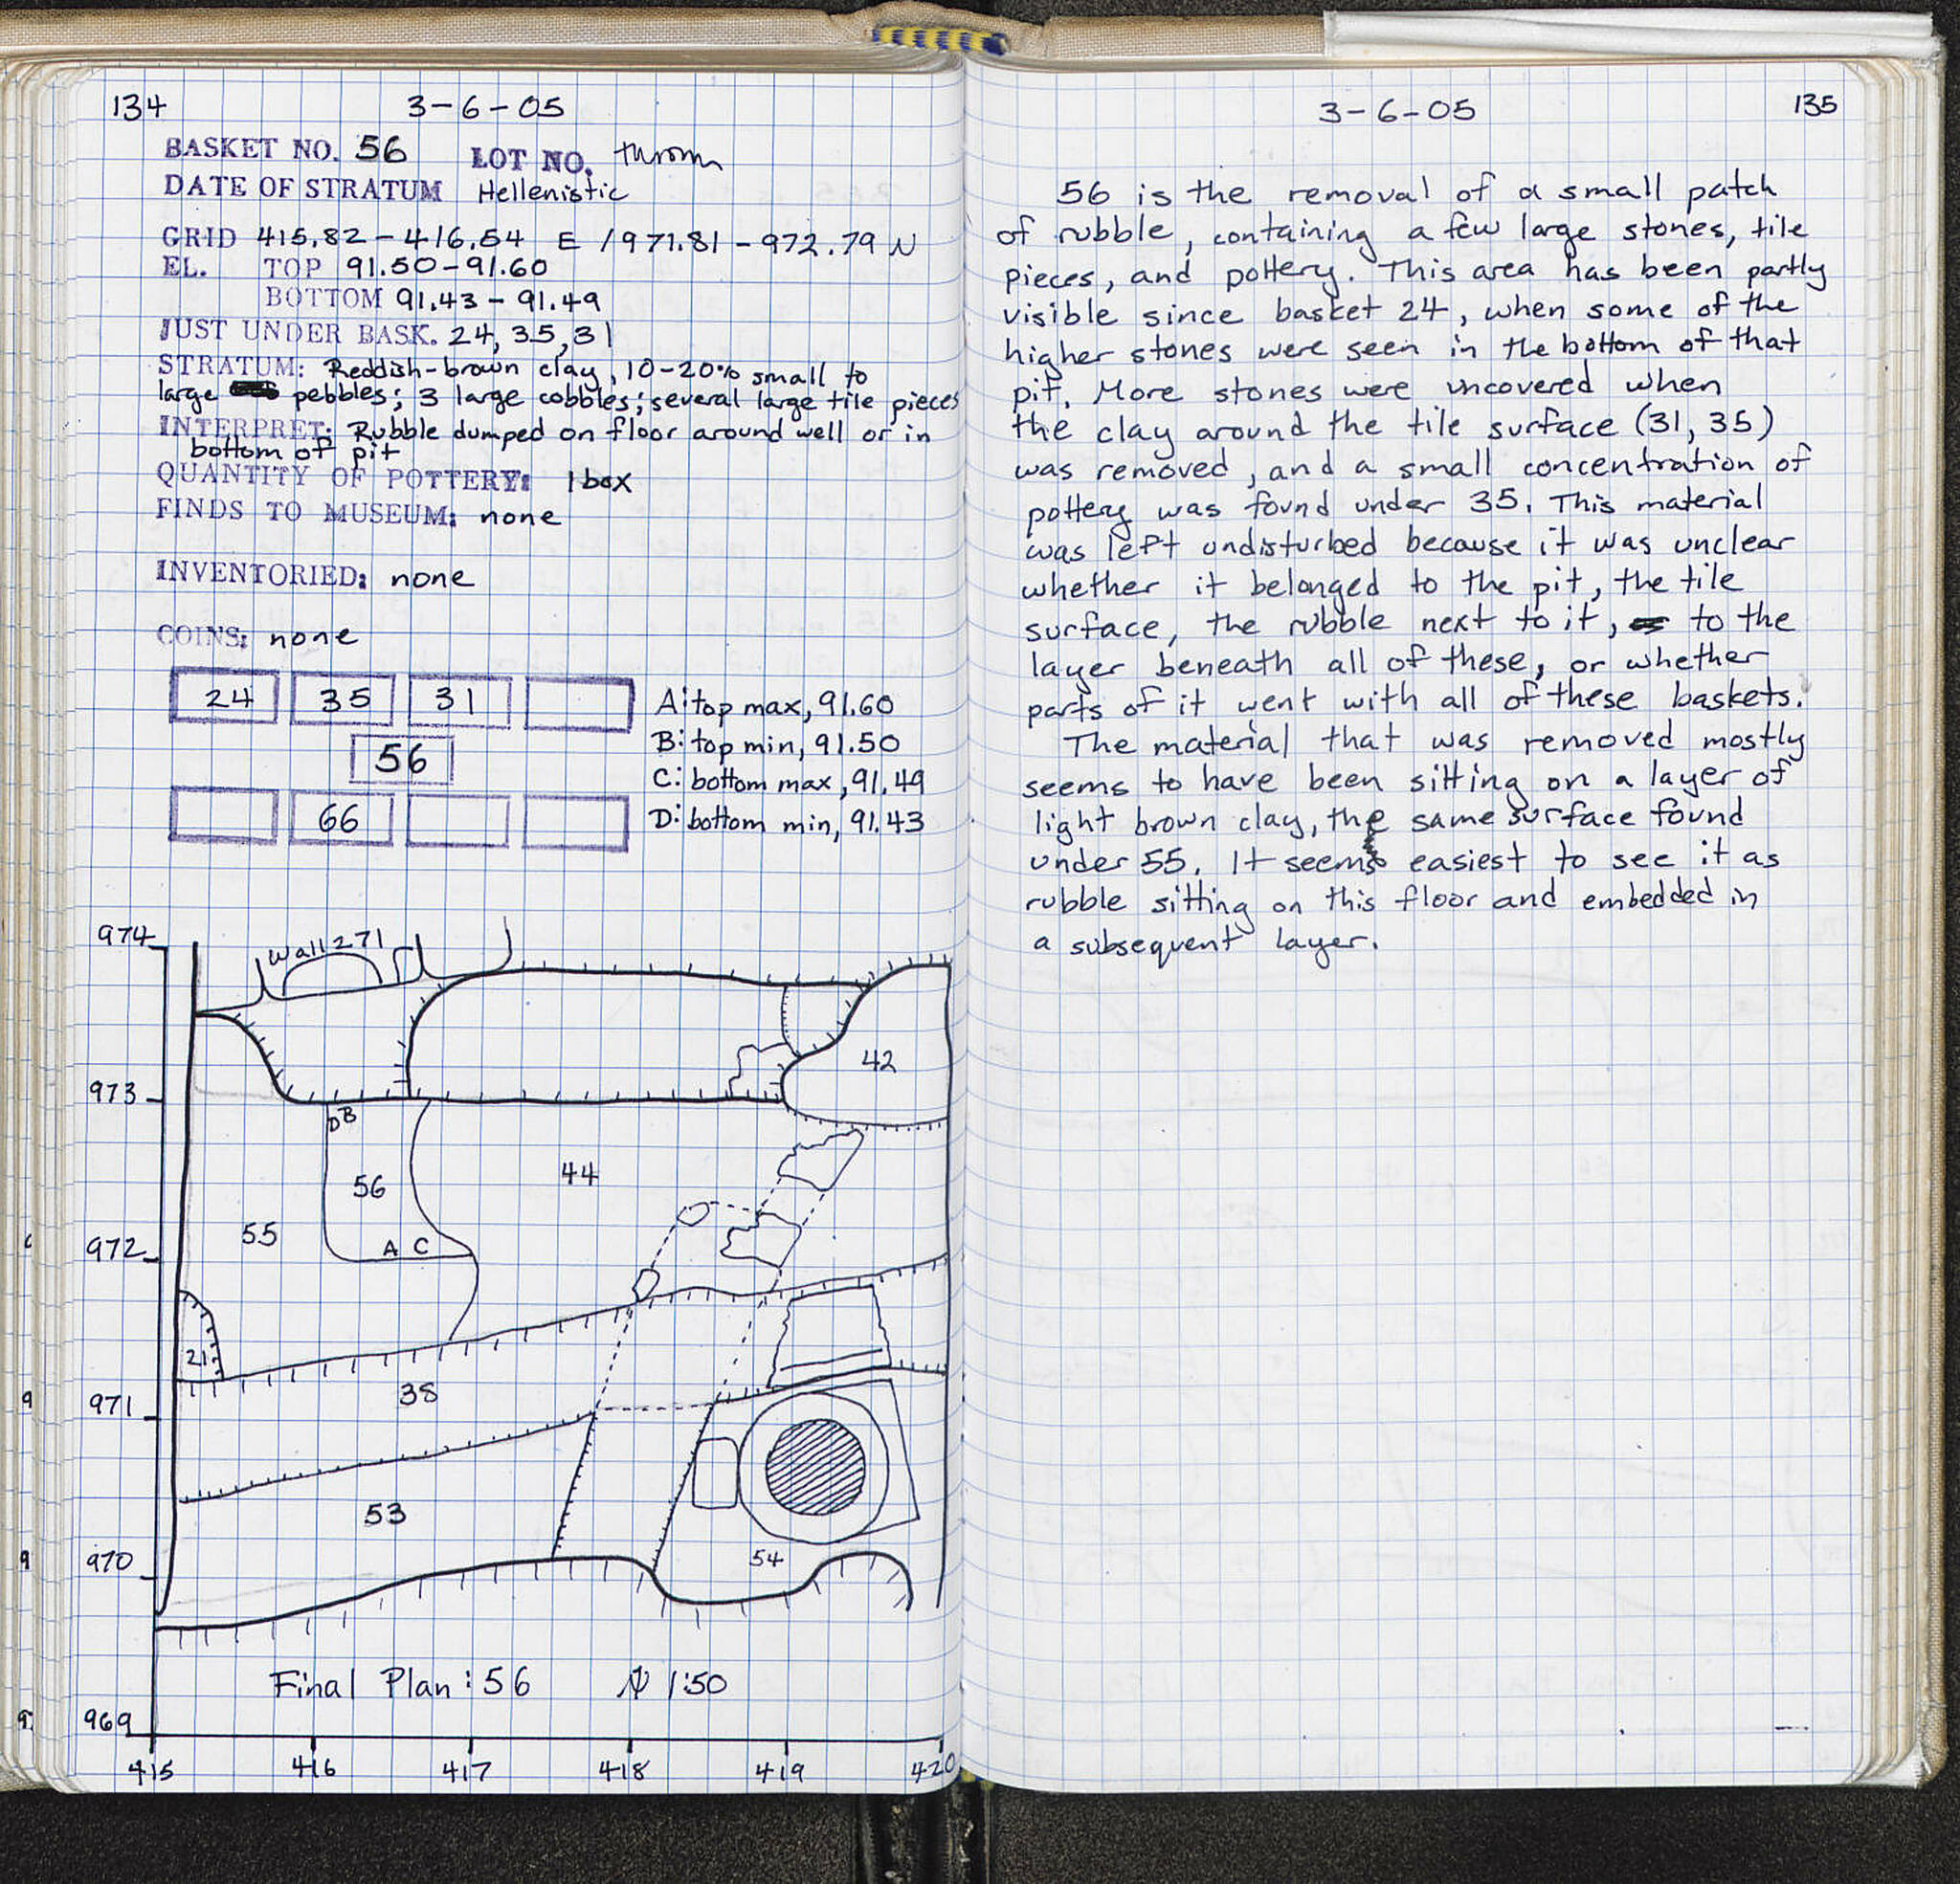 134
3-6-05
BASKET NO. 56 LOT NO. thrown
DATE OF STRATUM Hellenistic
GRID 415.82-416.54 E / 971.81-972.79 N
EL. TOP 91.50-91.60
BOTTOM 91.43-91.49
JUST UNDER BASK. 24, 35, 31
STRATUM: Reddish-brown clay, 10-20% small to
large pebbles; 3 large cobbles; several large tile pieces
INTERPRET: Rubble dumped on floor around well or in
bottom of pit
QUANTITY OF POTTERY: 1 box
FINDS TO MUSEUM: none
INVENTORIED: none
COINS: none
24 35 31
56
66
A: top max, 91.60
B: top min, 91.50
C: bottom max, 91.49
D: bottom min, 91.43
974
Wall 271
42
973
D B
56
44
55
A C
972
21
38
971
53
970
54
Final Plan: 56 N 1:50
969
415 416 417 418 419 420
3-6-05
135
56 is the removal of a small patch
of rubble, containing a few large stones, tile
pieces, and pottery. This area has been partly
visible since basket 24, when some of the
higher stones were seen in the bottom of that
pit. More stones were uncovered when
the clay around the tile surface (31, 35)
was removed, and a small concentration of
pottery was found under 35. This material
was left undisturbed because it was unclear
whether it belonged to the pit, the tile
surface, the rubble next to it, to the
layer beneath all of these, or whether
parts of it went with all of these baskets.
The material that was removed mostly
seems to have been sitting on a layer of
light brown clay, the same surface found
under 55. It seems easiest to see it as
rubble sitting on this floor and embedded in
a subsequent layer.